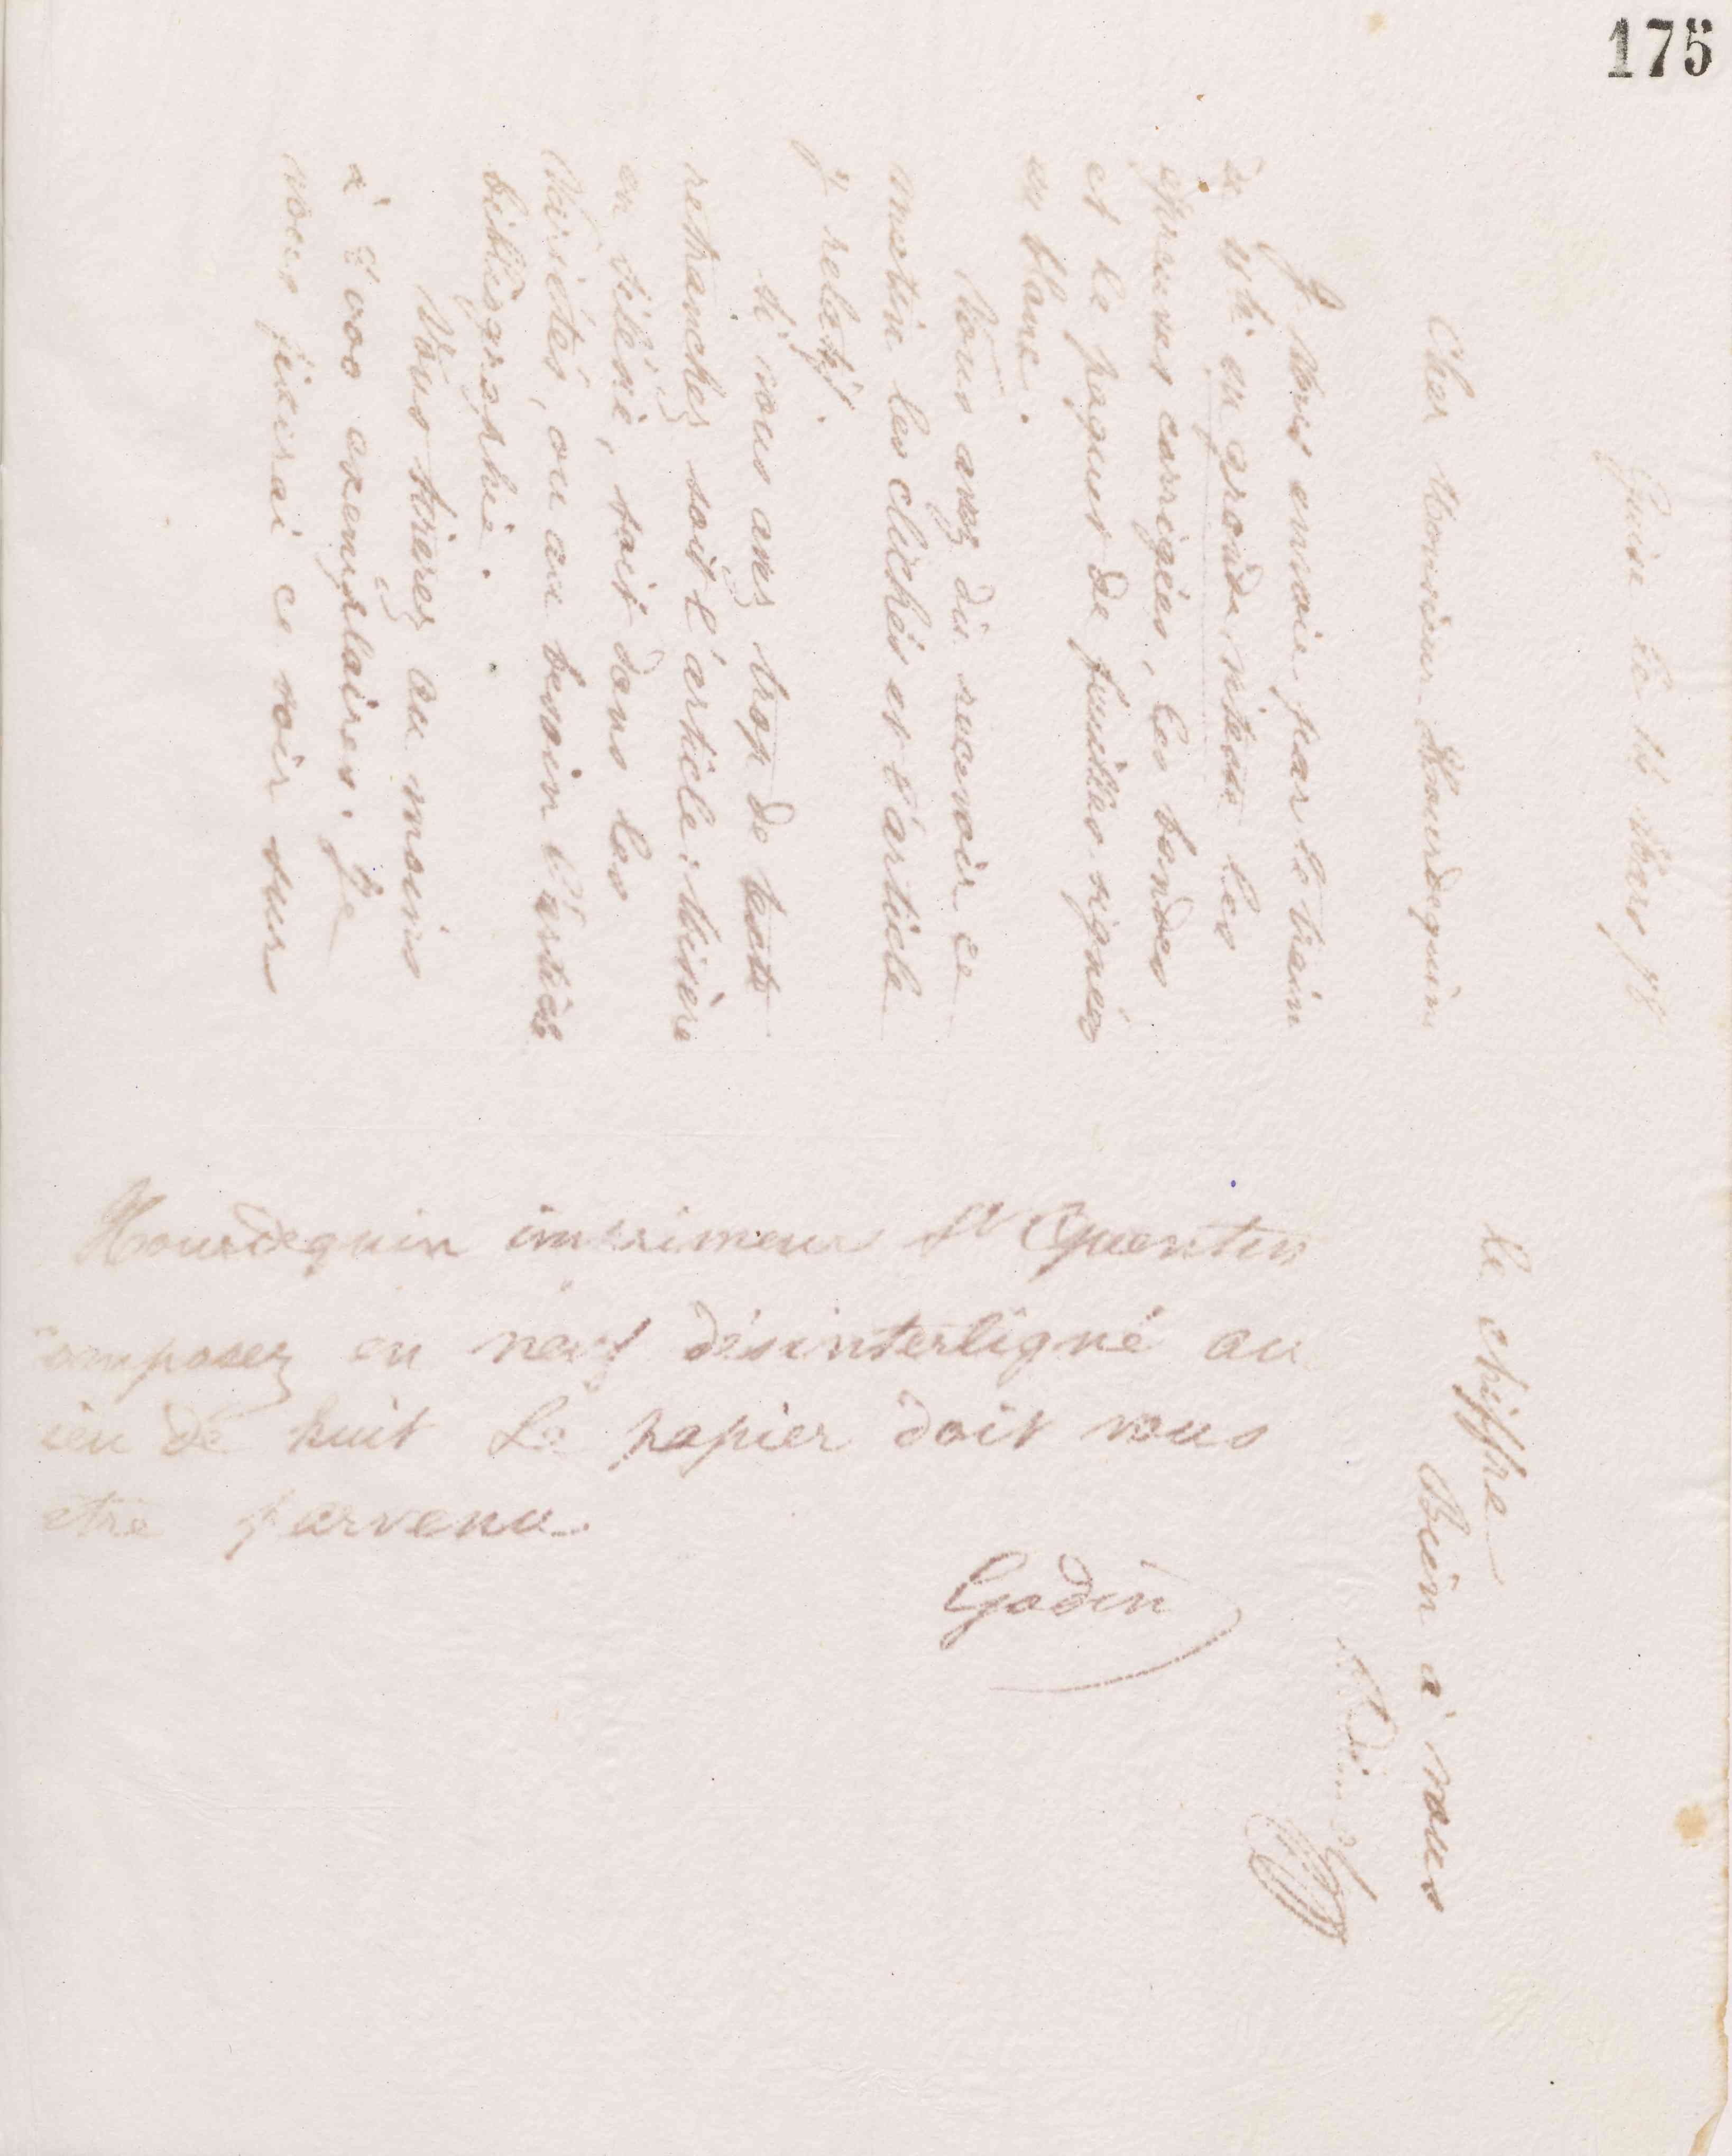 175
Guise le 15 Mars 78
Cher Monsieur Hourdequin
Je vous envoie par le train
de 11 h. en grande vitesse les
épreuves corrigées, les bandes
et les pages de feuilles signées
en blanc.
Vous avez dû recevoir ce
matin les clichés et l'article
y relatif.
Si vous avez trop de texte
retranchez soit l'article: Misère
en Silésie, soit dans les
Variétés, ou au besoin l'article
bibliographie.
Vous tirerez au moins
à 000 exemplaires. Je
vous fixerai ce soir sur
le chiffre
Bien à vous
Godin
Hourdequin imprimeur St Quentin
composez en neuf désinterligné au
ieu de huit Le papier doit vous
etre parvenu.
Godin